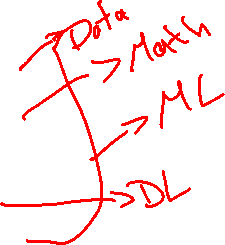 Data
Math
ML
DL